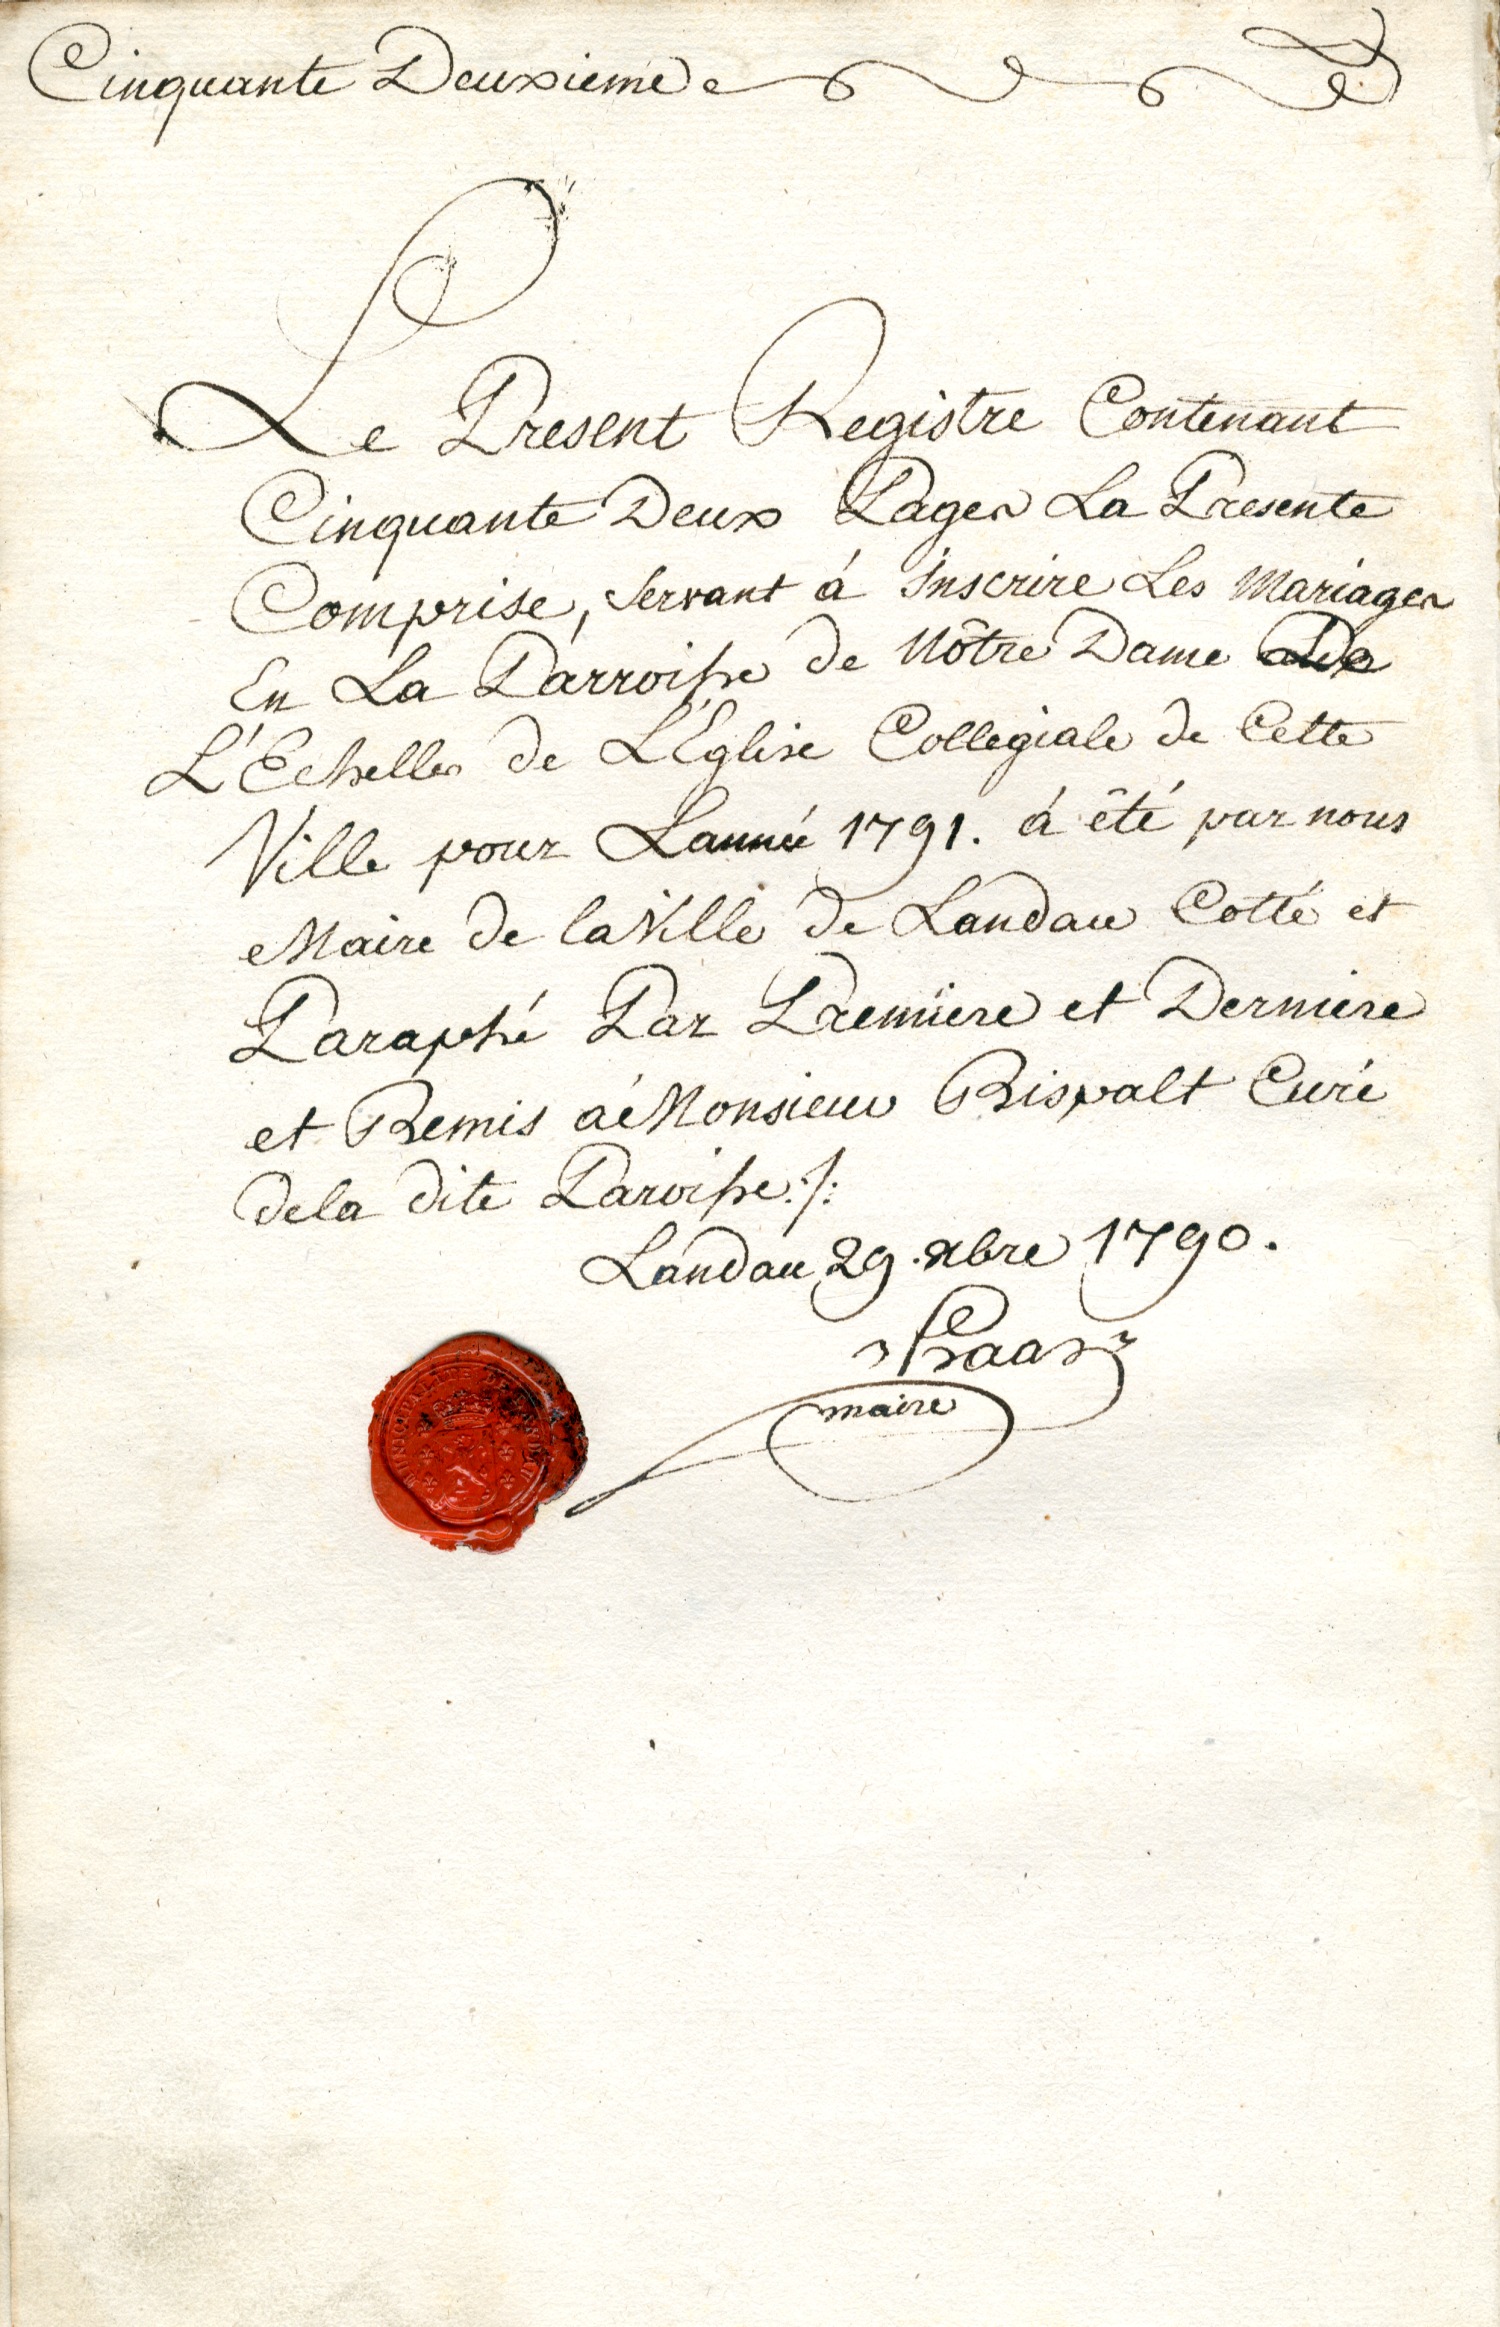 Cinquante Deuxieme
Le Present Registre Contenant
Cinquante Deux Pages La Presente
Comprise, Servant á Inscrire Les Mariages
En La Parroisse de Nôtre Dame
L'Echelles de L'Eglise Collegiale de Cette
Ville pour Lannée 1791. á êté par nous
Maire de la Ville de Landau Cotté et
Paraphé Par Premiere et Derniere
et Remis á Monsieur Rispalt Curé
dela dite Paroisse:/:
Landau 29. xbre 1790.
Haas
maire
MUNICIPALITE DE LANDAU